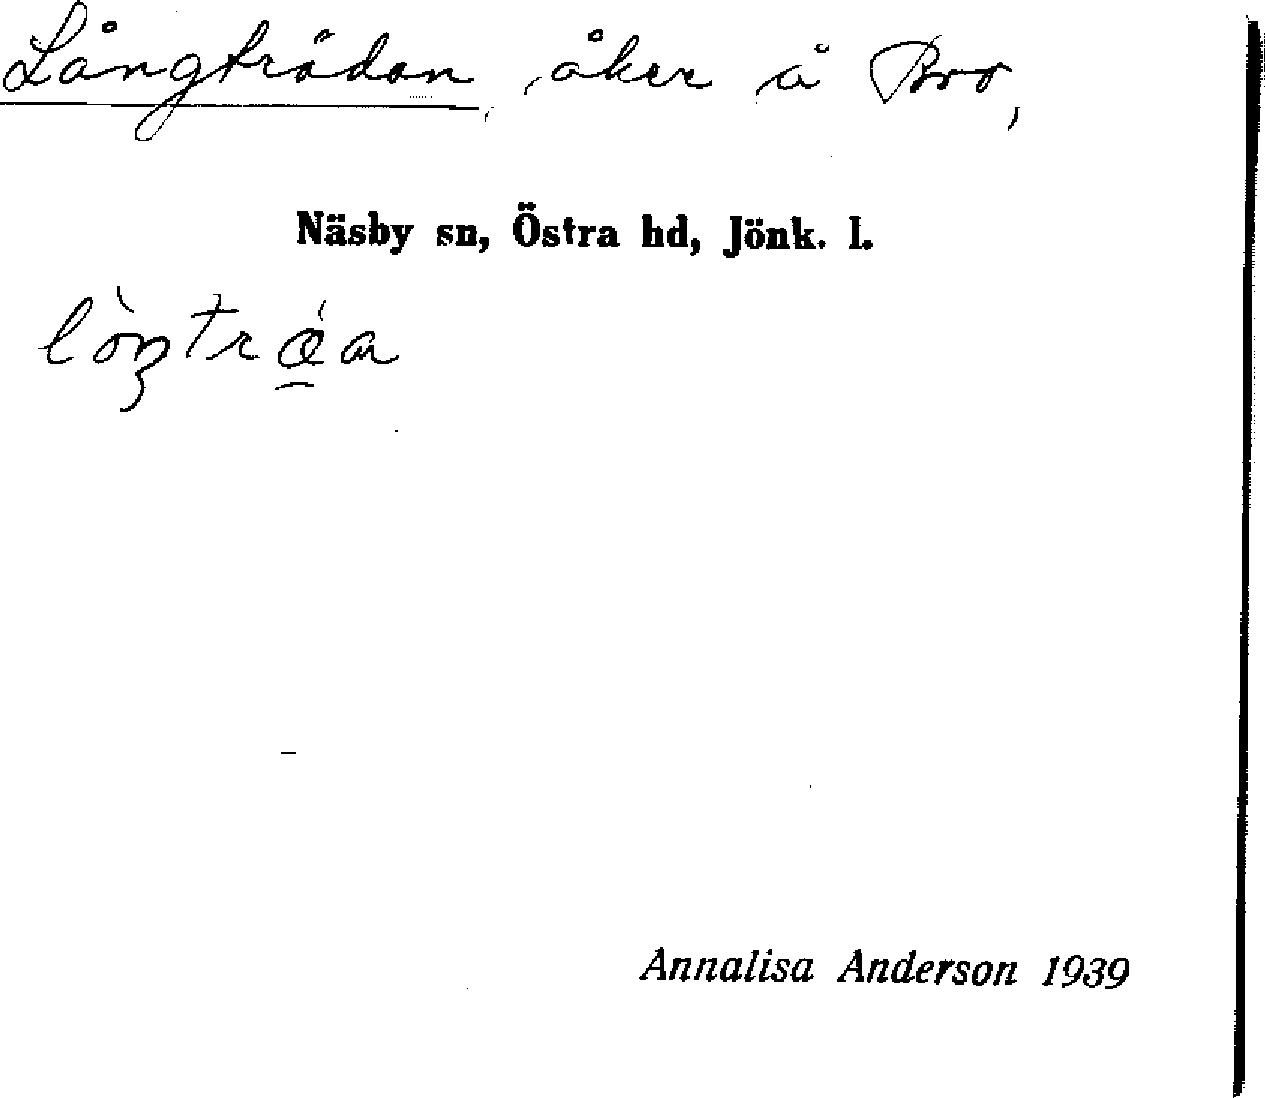 Långträdan, åker å Bro,
Näsby sn, Östra hd, Jönk. l.
Annalisa Anderson 1939